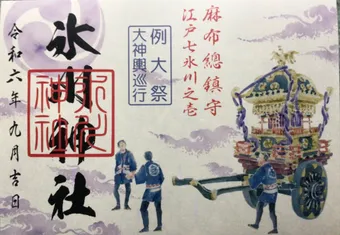 麻布總鎮守
江戸七氷川之壱
例大祭
大神輿巡行
氷川神社
氷川神社
令和六年九月吉日